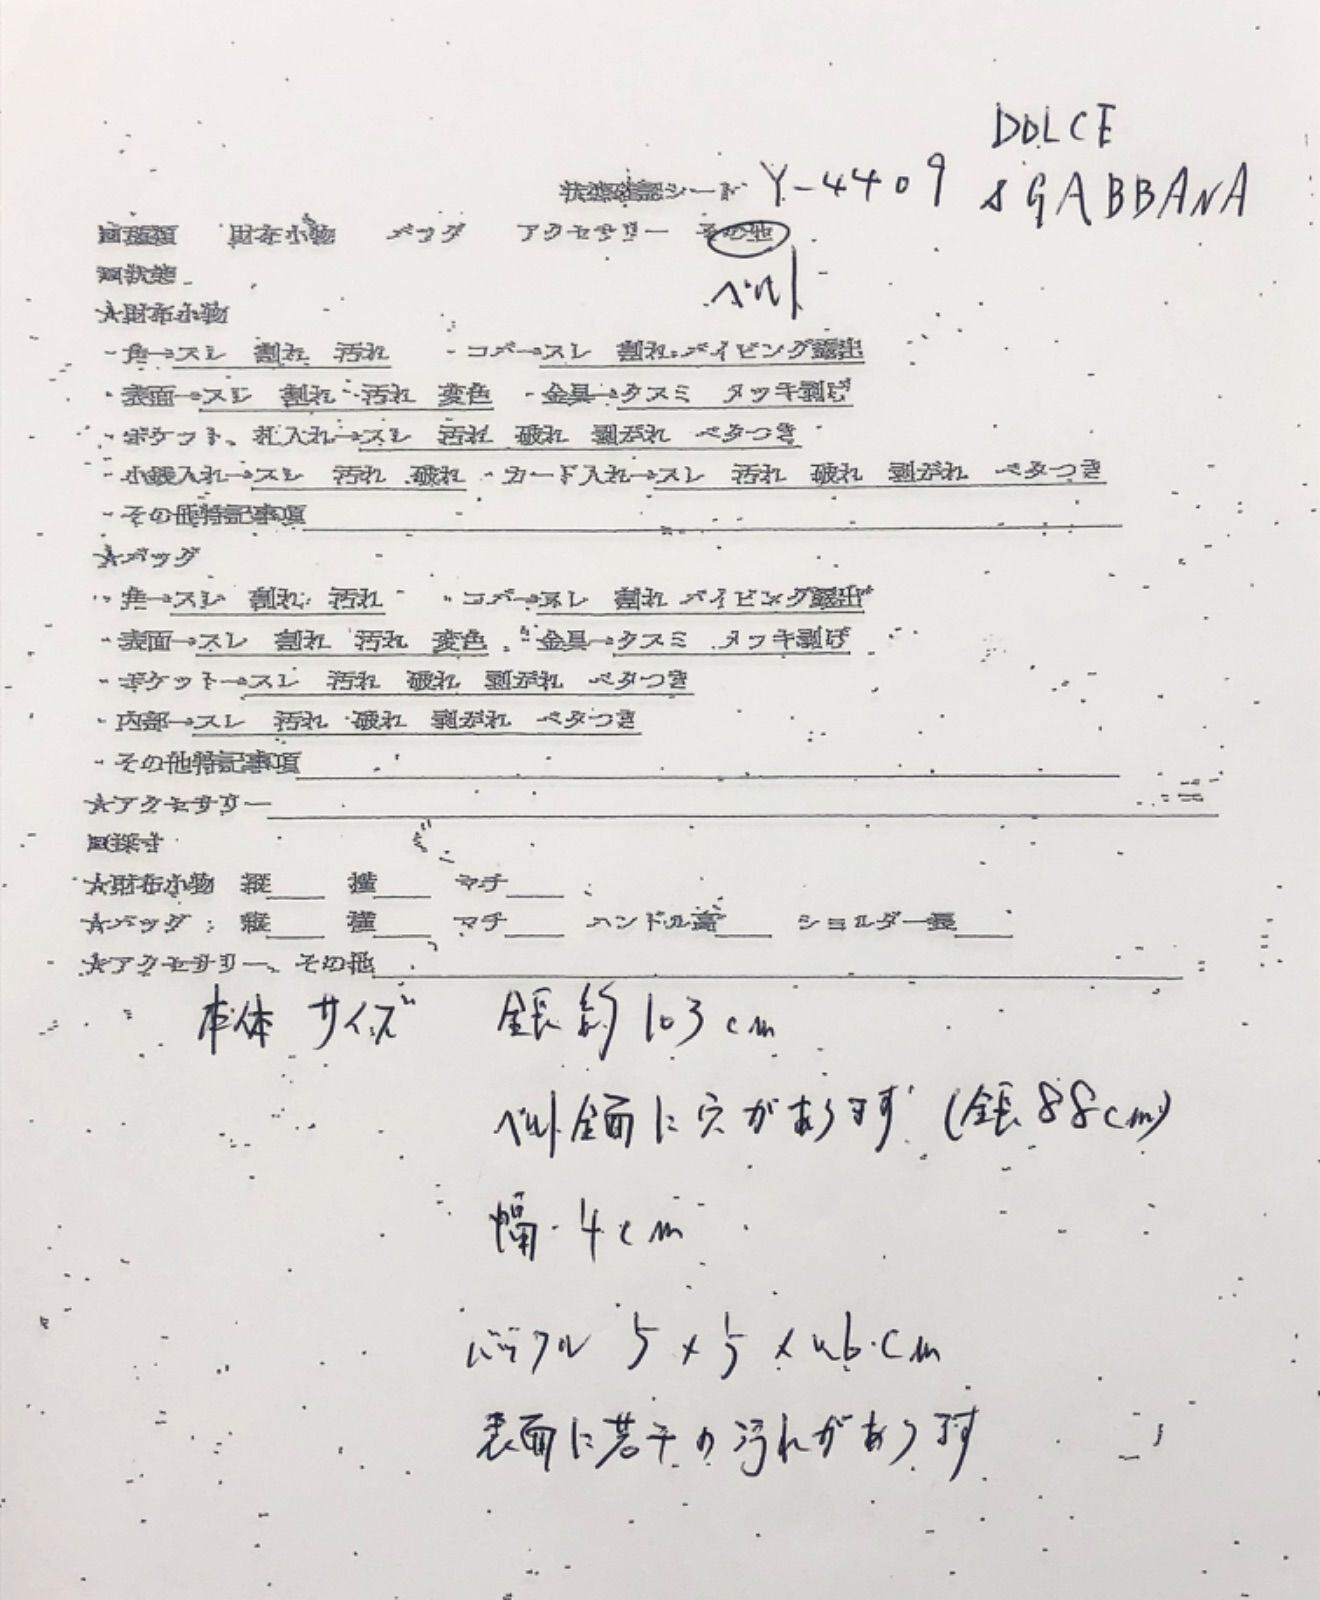 DOLCE
状態確認シート Y-4409 & GABBANA
回種類 財布小物 バッグ アクセサリー その他
ベルト
回状態
★財布小物
・角→スレ 割れ 汚れ ・コバ→スレ 割れ パイピング露出
・表面→スレ 割れ 汚れ 変色 ・金具→クスミ メッキ剥げ
・ポケット、札入れ→スレ 汚れ 破れ 剥がれ ベタつき
・小銭入れ→スレ 汚れ 破れ ・カード入れ→スレ 汚れ 破れ 剥がれ ベタつき
・その他特記事項
★バッグ
・角→スレ 割れ 汚れ ・コバ→スレ 割れ パイピング露出
・表面→スレ 割れ 汚れ 変色 ・金具→クスミ メッキ剥げ
・ポケット→スレ 汚れ 破れ 剥がれ ベタつき
・内部→スレ 汚れ 破れ 剥がれ ベタつき
・その他特記事項
★アクセサリー
回採寸
★財布小物 縦 横 マチ
★バッグ 縦 横 マチ ハンドル高 ショルダー長
★アクセサリー、その他
本体サイズ 全長約103cm
ベルト全面に穴があります (全長88cm)
幅 4cm
バックル 5×5× cm
表面に若干の汚れがあります